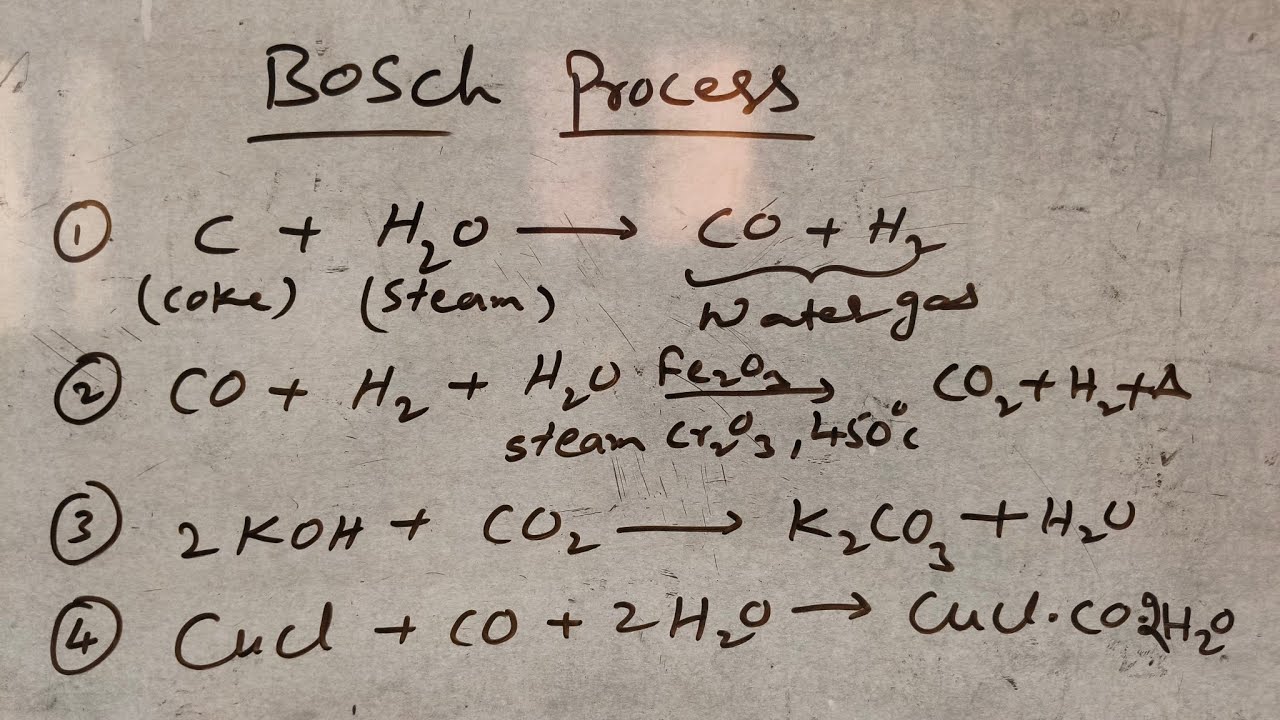 Bosch Process
① C + H₂O ⟶ CO + H₂
(coke) (steam) Water gas
② CO + H₂ + H₂O Fe₂O₃ ⟶ CO₂ + H₂ + Δ
steam Cr₂O₃, 450°C
③ 2KOH + CO₂ ⟶ K₂CO₃ + H₂O
④ CuCl + CO + 2H₂O ⟶ CuCl·CO·2H₂O